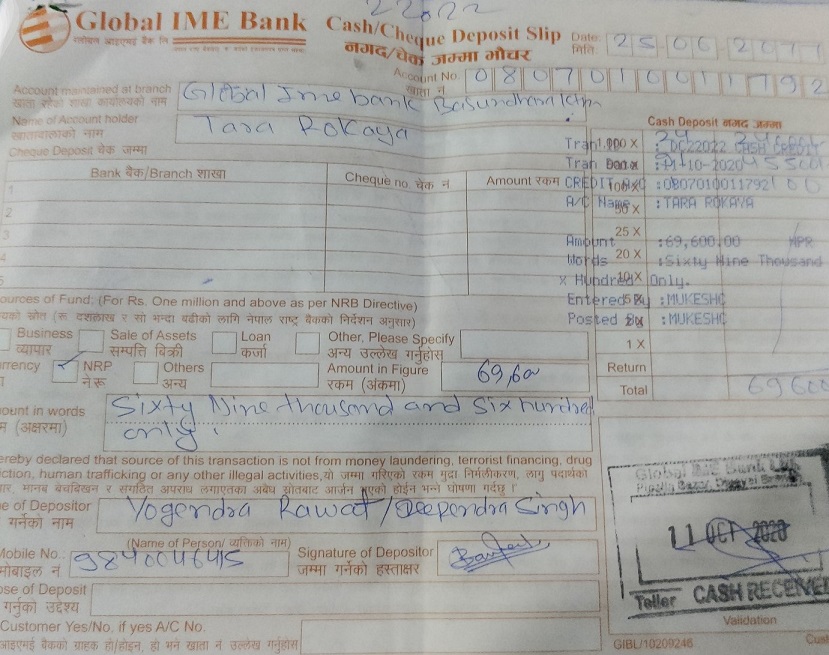 22022
Global IME Bank Cash/Cheque Deposit Slip
ग्लोबल आइएमई बैंक लि नगद/चेक जम्मा भौचर
Date: मिति: 25 06 2077
Account No. खाता नं 0807010011792
Account maintained at branch Global Ime bank Basundhara ktm
खाता रहेको शाखा कार्यालयको नाम
Name of Account holder Tara Rokaya
खातावालाको नाम
Cheque Deposit चेक जम्मा
Cash Deposit नगद जम्मा
Bank बैंक/Branch शाखा Cheque no. चेक नं Amount रकम
1
2
3
4
5
1,000 X
25 X
20 X
10 X
5 X
2 X
1 X
Return
Total 69600
Tran : DC22022 CASH CREDIT
Tran Date : 11-10-2020
CREDIT A/C : 0807010011792
A/C Name : TARA ROKAYA
Amount :69,600.00 NPR
Words :Sixty Nine Thousand
x Hundred Only.
Entered By :MUKESHC
Posted By :MUKESHC
ources of Fund: (For Rs. One million and above as per NRB Directive)
यको स्रोत (रू दशलाख र सो भन्दा बढीको लागि नेपाल राष्ट्र बैंकको निर्देशन अनुसार)
Business Sale of Assets Loan Other, Please Specify
व्यापार सम्पत्ति बिक्री कर्जा अन्य उल्लेख गर्नुहोस
rrency NRP Others Amount in Figure 69,600
नेरू अन्य रकम (अंकमा)
ount in words Sixty Nine thousand and Six hundred
म (अक्षरमा) only.
ereby declared that source of this transaction is not from money laundering, terrorist financing, drug
ction, human trafficking or any other illegal activities,यो जम्मा गरिएको रकम मुद्रा निर्मलीकरण, लागु पदार्थको
ार, मानव बेचबिखन र संगठित अपराध लगाएतका अबैध स्रोतबाट आर्जन भएको होईन भन्ने घोषणा गर्दछु ।
e of Depositor Yogendra Rawat/Deependra Singh
गर्नेको नाम
(Name of Person/ व्यक्तिको नाम)
Mobile No.: 9840046415 Signature of Depositor
मोबाइल नं जम्मा गर्नेको हस्ताक्षर
ose of Deposit
गर्नुको उद्देश्य
Customer Yes/No, if yes A/C No.
आइएमई बैंकको ग्राहक हो/होइन, हो भने खाता नं उल्लेख गर्नुहोस
Global IME Bank Ltd.
11 OCT 2020
Teller CASH RECEIVED
Validation
GIBL/10209246